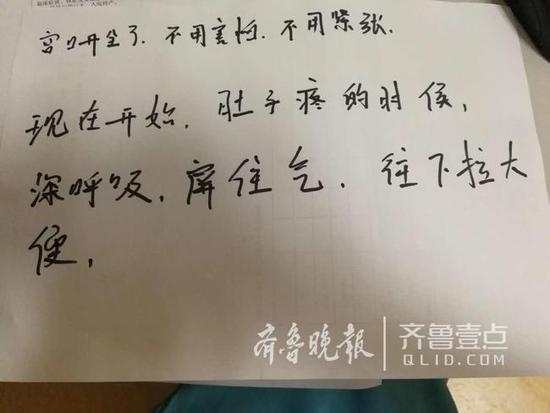 宫口开全了.不用害怕.不用紧张.
现在开始.肚子疼的时侯,
深呼吸,屏住气.往下拉大
便,
齐鲁晚报 齐鲁壹点
QLID.COM